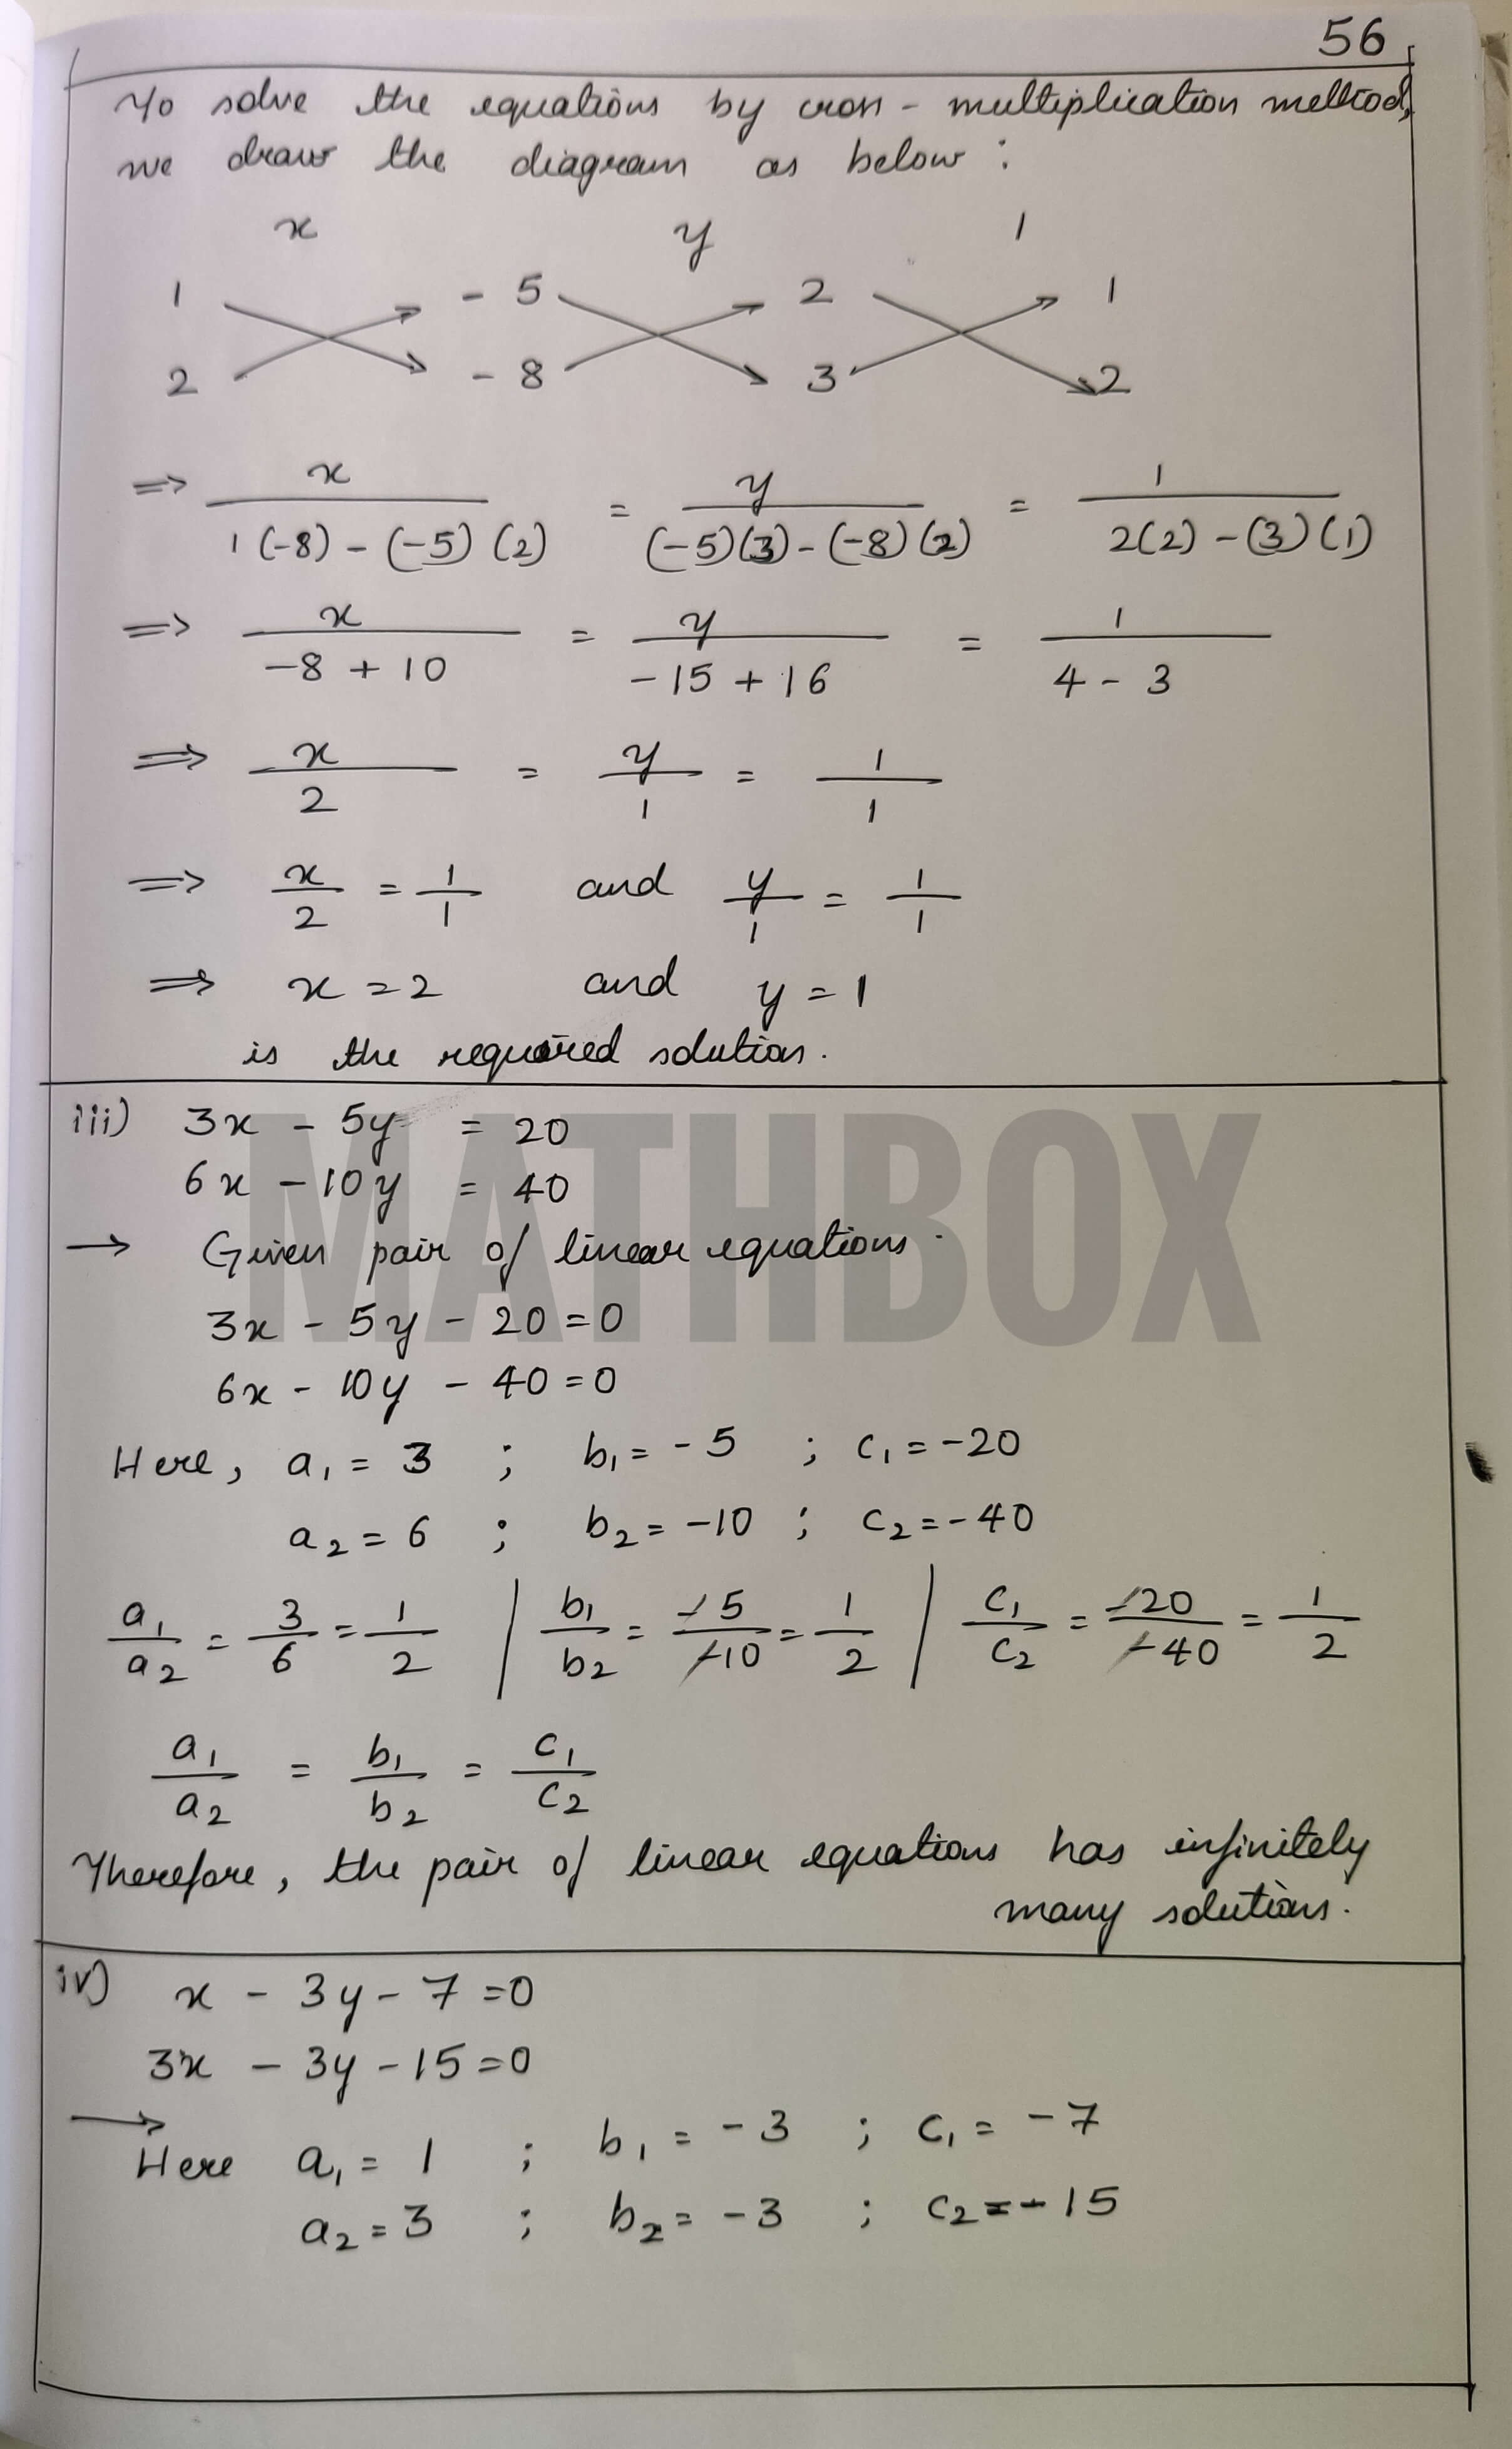 56
To solve the equations by cross-multiplication method,
we draw the diagram as below :
x y 1
1 -5 2 1
2 -8 3 2
⇒ x/(1(-8) - (-5)(2)) = y/((-5)(3) - (-8)(2)) = 1/(2(2) - (3)(1))
⇒ x/(-8 + 10) = y/(-15 + 16) = 1/(4 - 3)
⇒ x/2 = y/1 = 1/1
⇒ x/2 = 1/1 and y/1 = 1/1
⇒ x = 2 and y = 1
is the required solution.
iii) 3x - 5y = 20
6x - 10y = 40
→ Given pair of linear equations.
3x - 5y - 20 = 0
6x - 10y - 40 = 0
Here, a₁ = 3 ; b₁ = -5 ; c₁ = -20
a₂ = 6 ; b₂ = -10 ; c₂ = -40
a₁/a₂ = 3/6 = 1/2 | b₁/b₂ = -5/-10 = 1/2 | c₁/c₂ = -20/-40 = 1/2
a₁/a₂ = b₁/b₂ = c₁/c₂
Therefore, the pair of linear equations has infinitely
many solutions.
iv) x - 3y - 7 = 0
3x - 3y - 15 = 0
→
Here a₁ = 1 ; b₁ = -3 ; c₁ = -7
a₂ = 3 ; b₂ = -3 ; c₂ = -15
MATHBOX